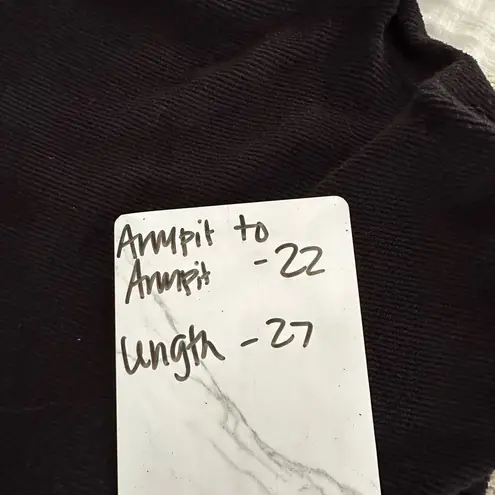 Armpit to
Armpit - 22
Length - 27